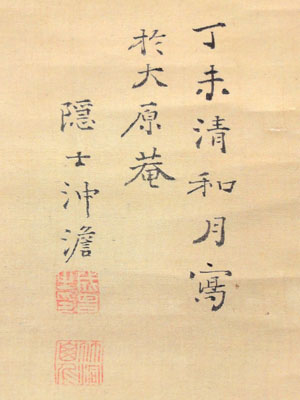 丁未清和月寫
於大原菴
隠士沖澹